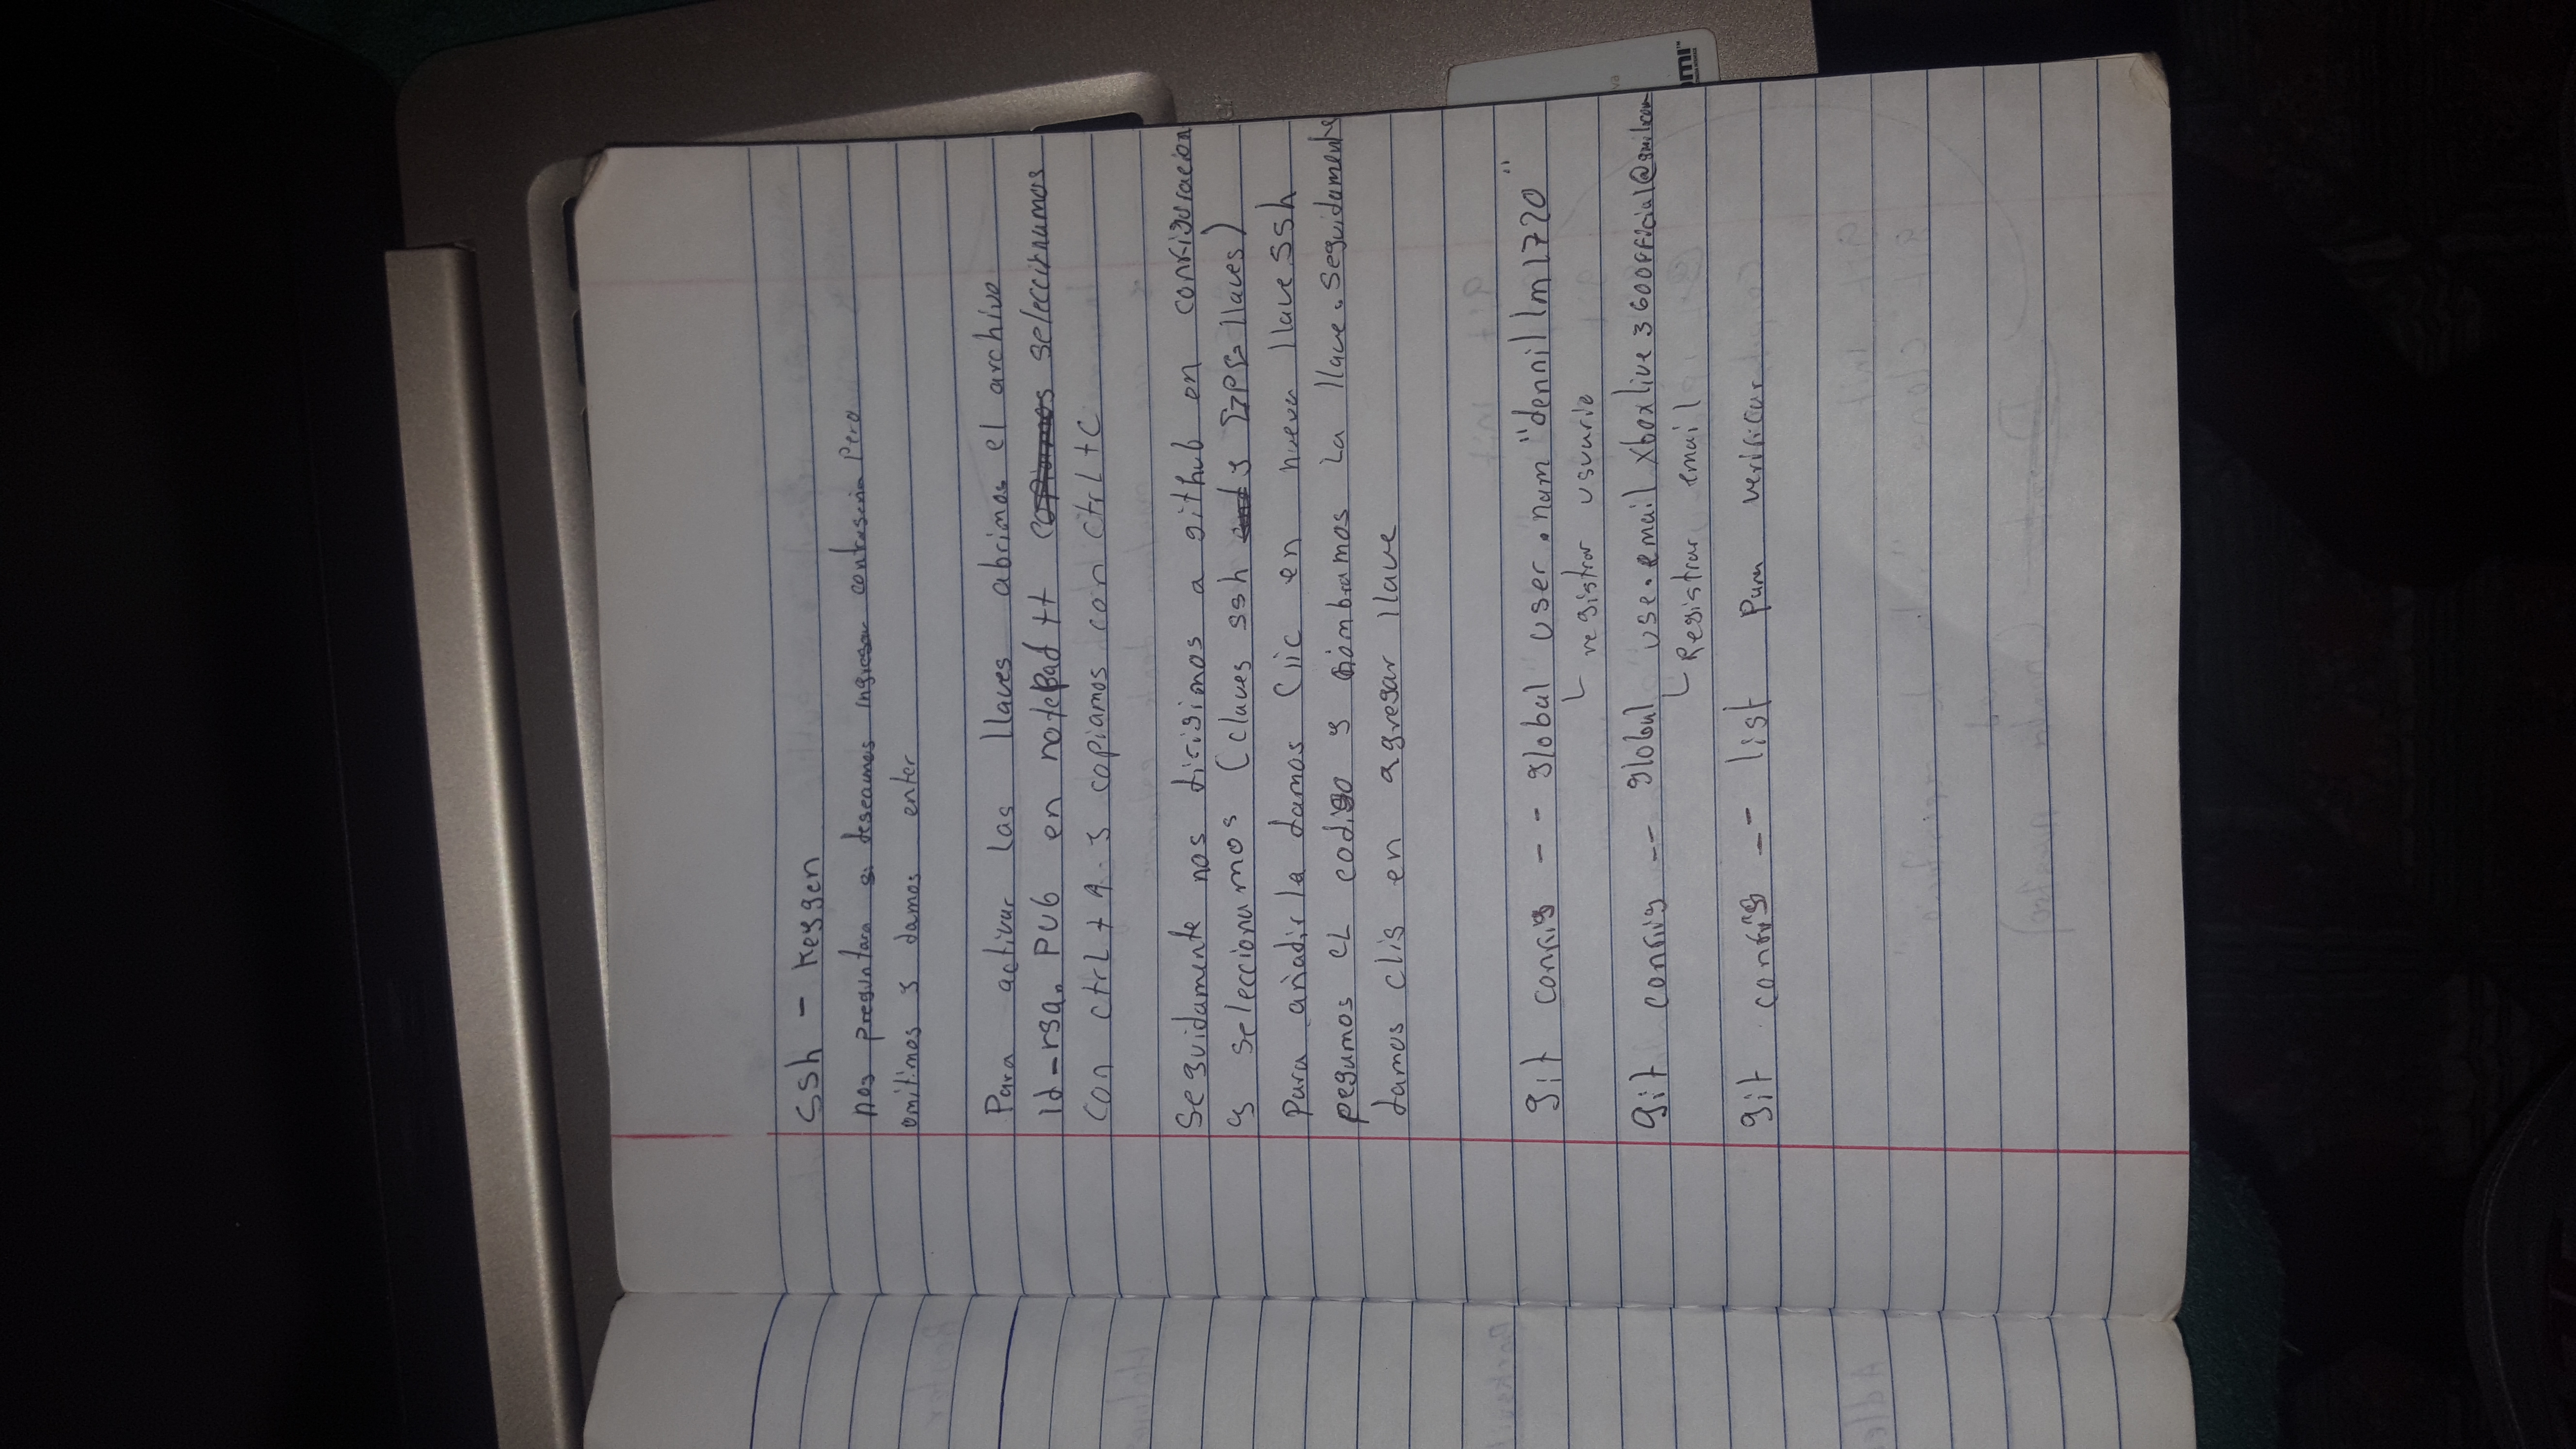 ssh - keygen
nos preguntara si deseamos ingresar contraseña pero
omitimos y damos enter
Para activar las llaves abrimos el archivo
id-rsa. PUb en notepad ++ copiamos seleccirnamos
con ctrl + A. y copiamos con ctrl+C
Seguidamente nos dirigimos a github en configuracion
y seleccionamos (claves ssh and y GPG llaves)
para añadirla damos Clic en nueva llave ssh
pegamos el codigo y nombramos la llave. Seguidamente
damos clis en agregar llave
git config -- global user.nam "dennillm1720"
registrar usuario
git config -- global use.email xboxlive360official@gmail.com
Registrar email
git config -- list para verificar